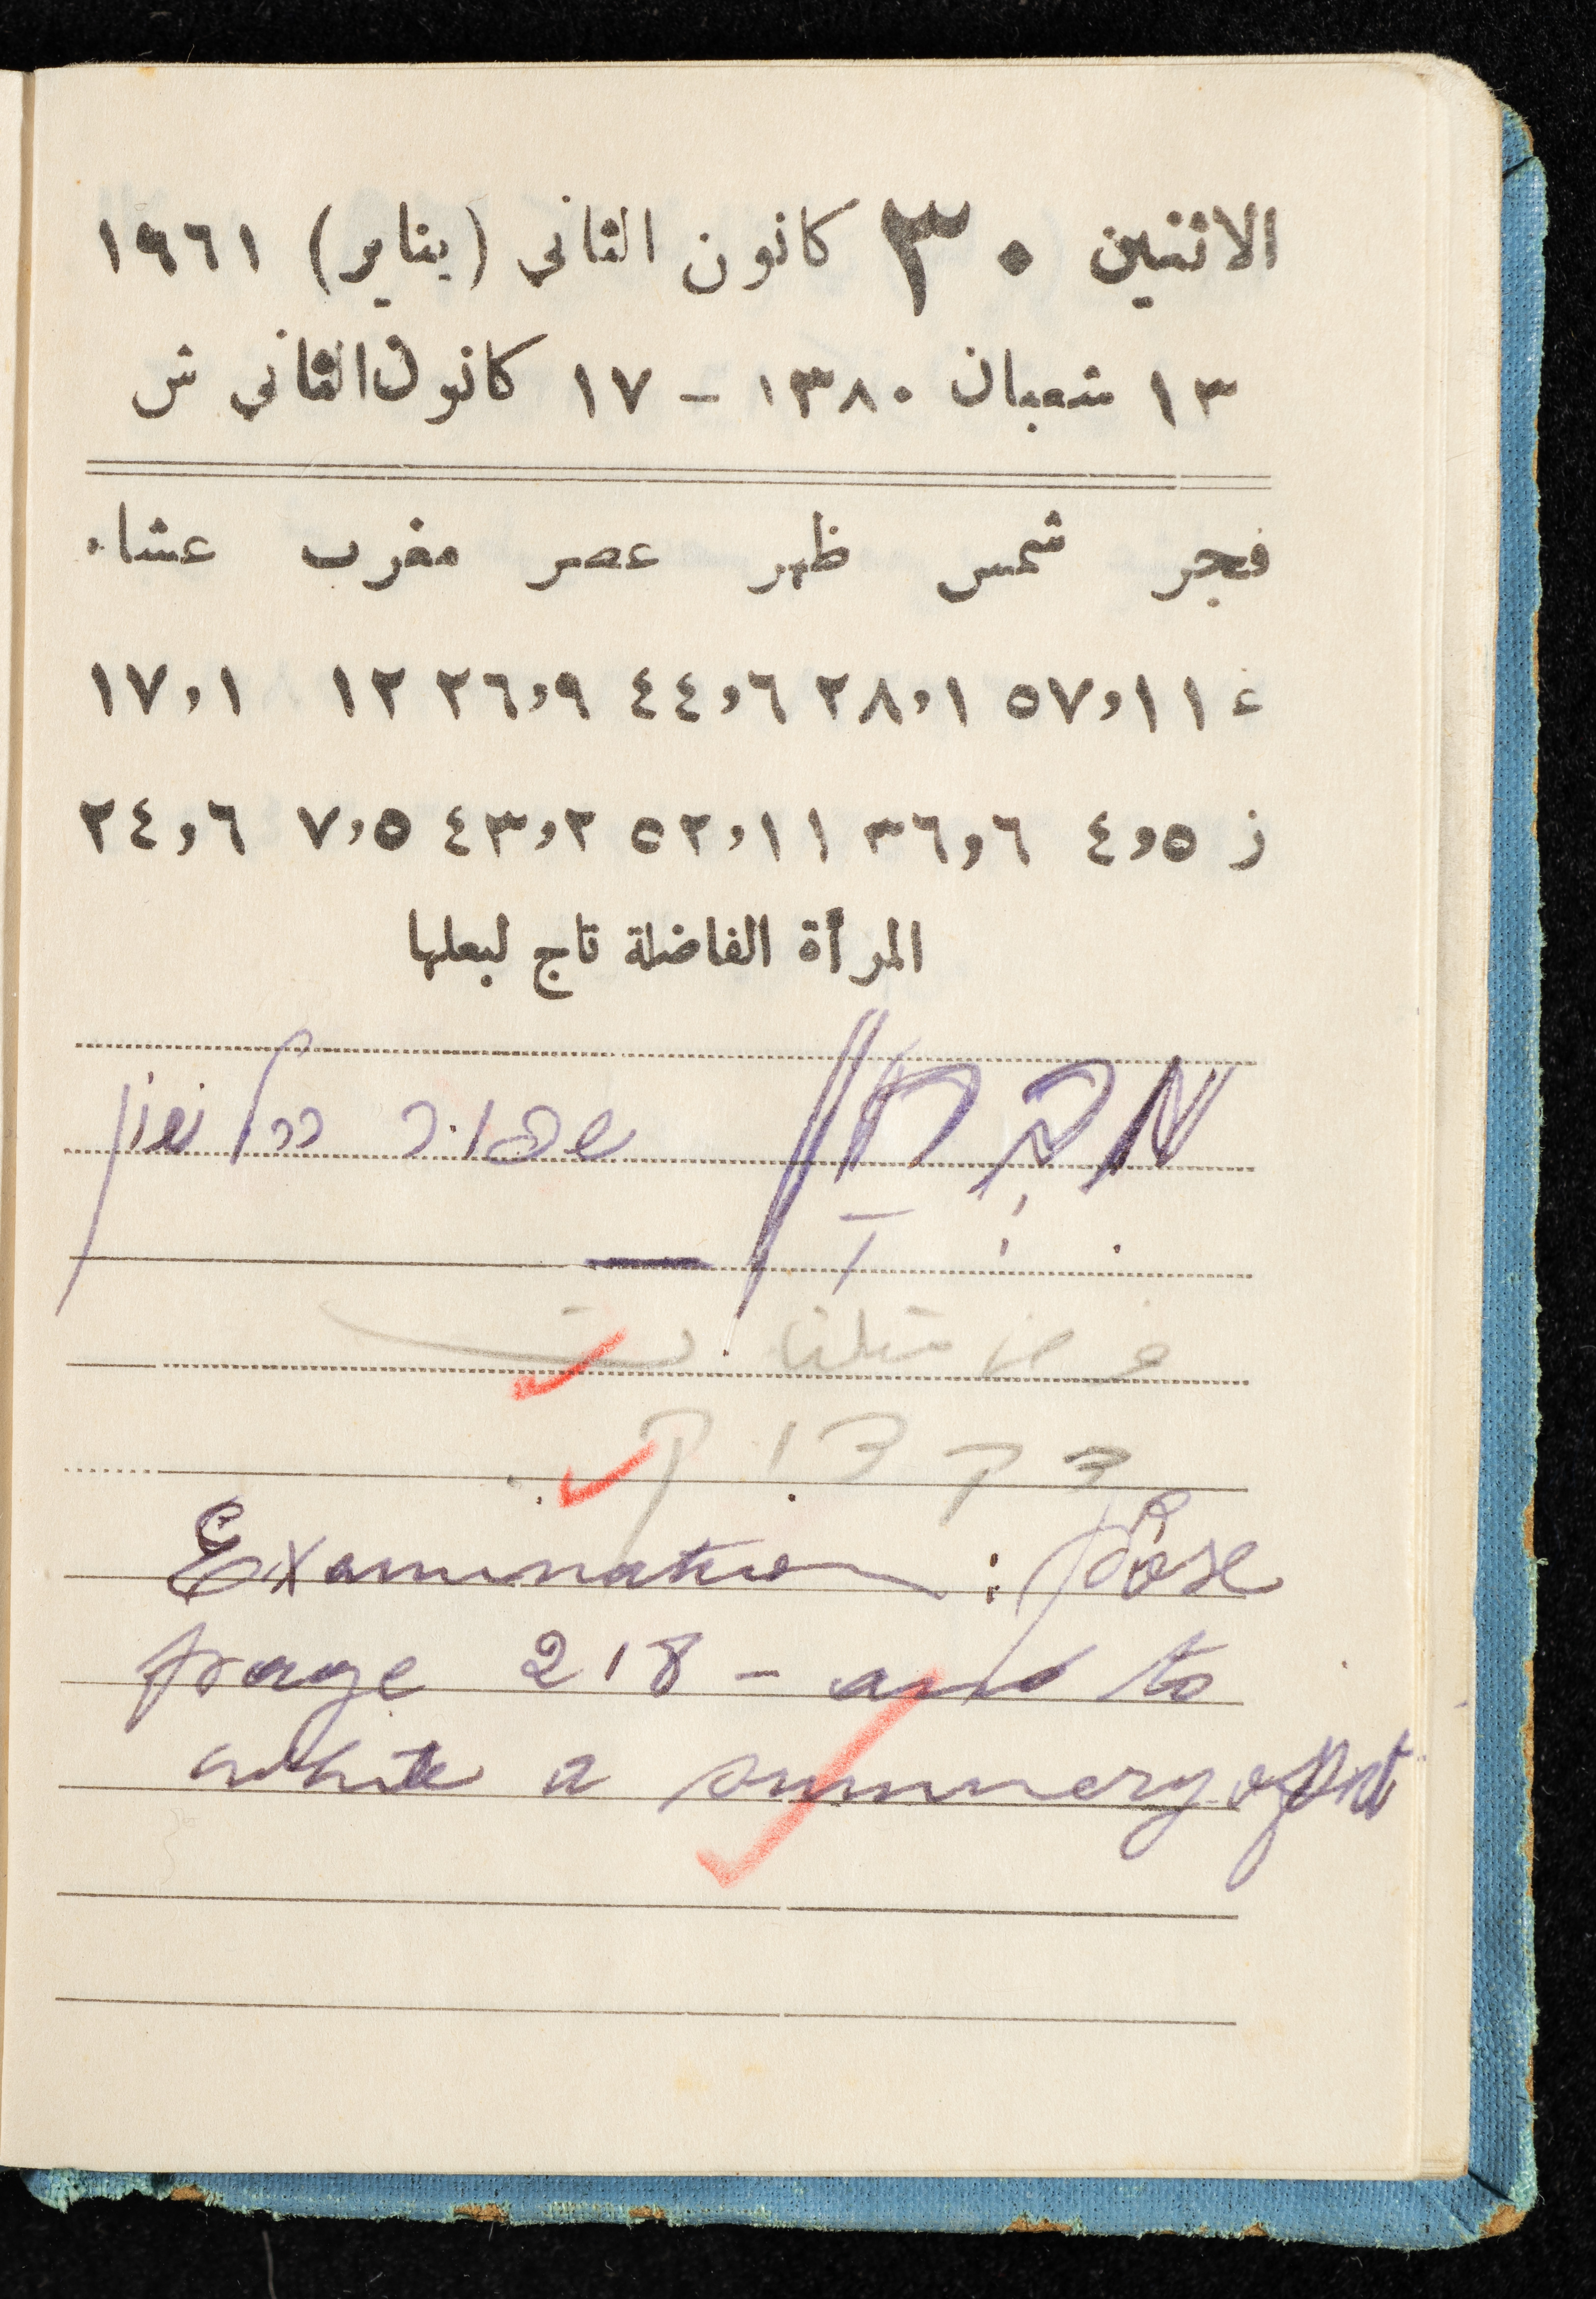 الاثنين ٣٠ كانون الثاني (يناير) ١٩٦١
١٣ شعبان ١٣٨٠ – ١٧ كانون الثاني ش
فجر شمس ظهر عصر مغرب عشاء
ع ٥٧,١١ ٢٨,١ ٤٤,٦ ٢٦,٩ ١٢ ١٧,١
ز ٤,٥ ٣٦,٦ ٥٢,١١ ٤٣,٢ ٧,٥ ٢٤,٦
المرأة الفاضلة تاج لبعلها
מִבְּחָן
דקדוק
Examination:
page 218 – and to
write a summery of it